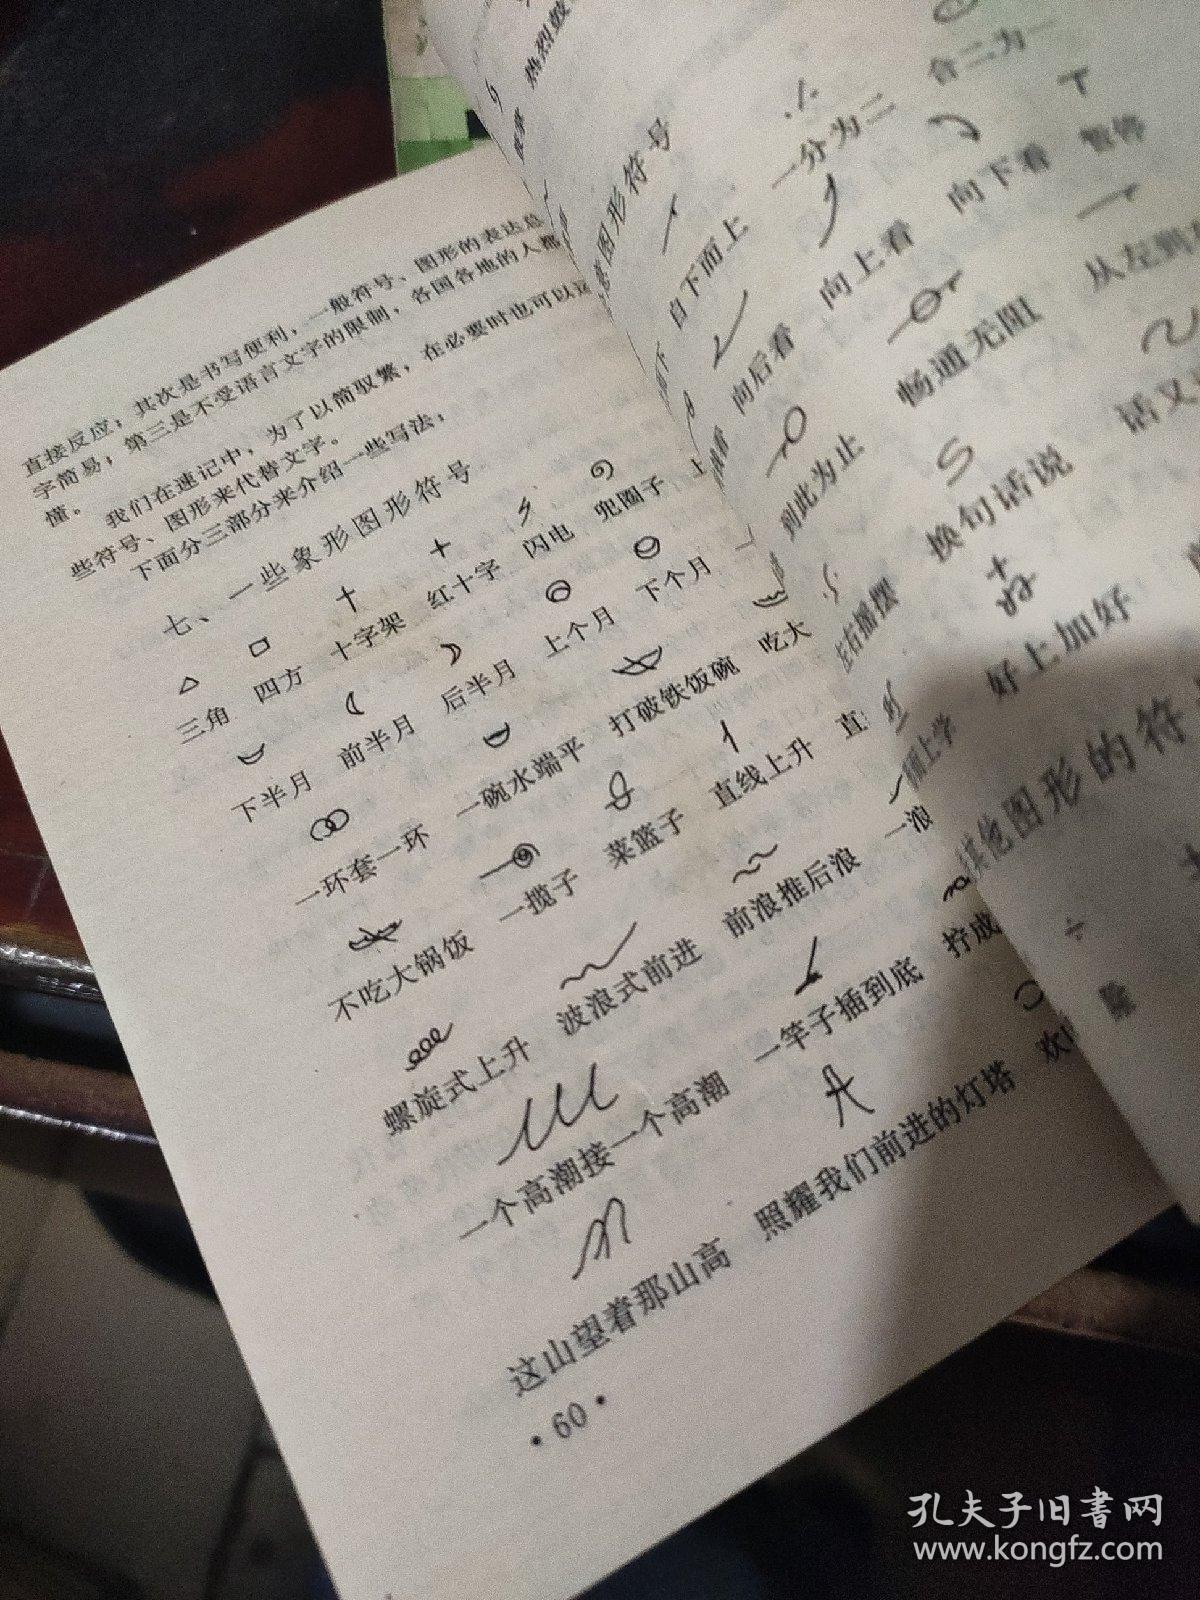 直接反应；其次是书写便利，一般符号、图形的表达总
字简易；第三是不受语言文字的限制，各国各地的人都
懂。
我们在速记中，为了以简驭繁，在必要时也可以运
些符号、图形来代替文字。
下面分三部分来介绍一些写法：
七、一些象形图形符号
三角 四方 十字架 红十字 闪电 兜圈子 上
下半月 前半月 后半月 上个月 下个月
一环套一环 一碗水端平 打破铁饭碗 吃大
不吃大锅饭 一揽子 菜篮子 直线上升 直
螺旋式上升 波浪式前进 前浪推后浪 一浪
一个高潮接一个高潮 一竿子插到底 拧成
这山望着那山高 照耀我们前进的灯塔 欢
·60·
热烈鼓
意图形符号
一分为二 合二为一
自下而上 向上看 向下看 暂停
向后看 畅通无阻 从左到
到此为止 换句话说 话又
左右摇摆 好上加好
上学
其他图形的符
÷
除
孔夫子旧书网
www.kongfz.com